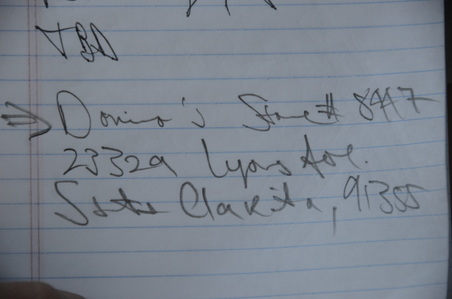 TBA
Domino's Store # 8447
23329 Lyons Ave.
Santa Clarita, 91355